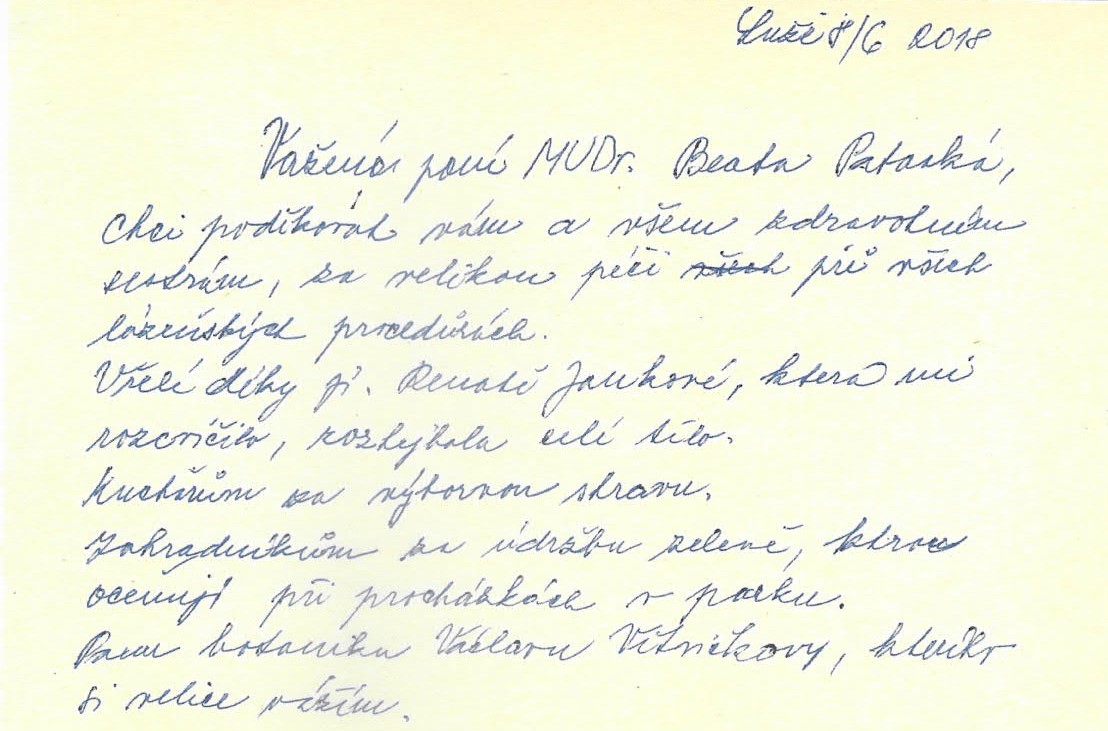 Luže 8/6 2018
Vážená paní MUDr. Beata Patarká,
chci poděkovat vám a všem zdravotním
sestrám, za velikou péči všech při všech
lázeňských procedurách.
Vřelé díky pí. Renatě Jankové, ktera mi
rozcvičila, rozhýbala celé tělo.
Kuchařům za výbornou stravu.
Zahradníkům za údržbu zeleně, kterou
oceňuji při procházkách v parku.
Panu botaniku Václavu, kterého
si velice vážím.